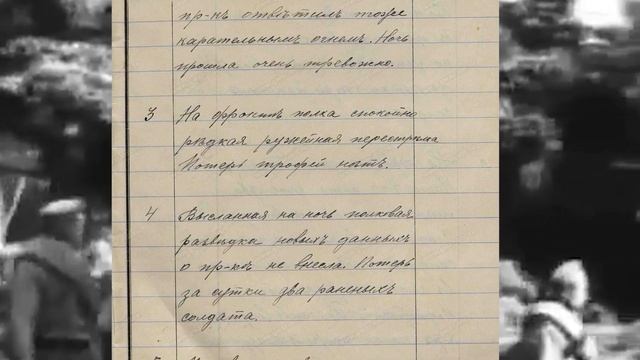 пр-къ отвѣтилъ тоже
карательнымъ огнемъ. Ночь
прошла очень тревожно.
3 На фронтѣ полка спокойно
рѣдкая ружейная перестрѣлка
Потерь трофей нѣтъ.
4 Высланная на ночь полковая
развѣдка новыхъ данныхъ
о пр-кѣ не внесла. Потерь
за сутки два раненыхъ
солдата.